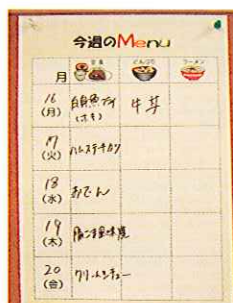 今週のMenu
月 定食 どんぶり ラーメン
16
(月) 白身魚フライ 牛丼
(ホキ)
17
(火) ハムステーキカツ
18
(水) おでん
19
(木)
20
(金) クリームシチュー